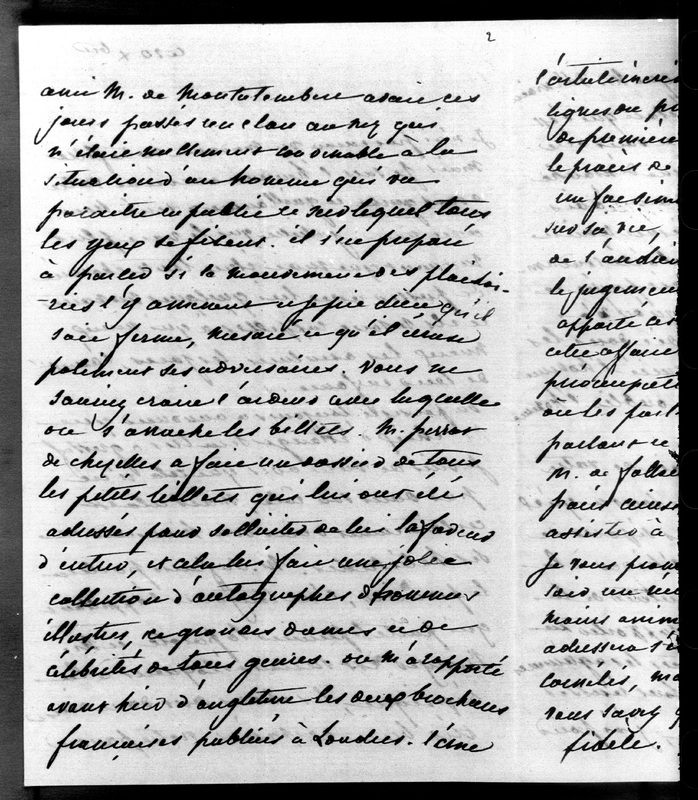 2
ami M. de Montalembert avait ces
jours passés un clou au nez qui
n'était nullement convenable à la
situation d'un homme qui va
paraître en public et sur lequel tous
les yeux se fixent. il s'est préparé
à parler si le mouvement des plaidoi-
-ries l'y amenait et je puis dire qu'il
sera ferme, mesuré et qu'il
poliment ses adversaires. Vous ne
sauriez croire l'ardeur avec laquelle
on s'arrache les billets. M. perrot
de chezelles a fait un dossier de tous
les petits billets qui lui ont été
adressés pour solliciter de lui la faveur
d'entrer, et cela lui fait une jolie
collection d'autographes d'hommes
illustres, de grandes dames et de
célébrités de tous genres. on m'a rapporté
avant hier d'angleterre les deux brochures
françaises publiées à Londres. l'une
l'article
lignes du
de première
le procès de
un facsimi
sur sa vie,
de l'audien
le jugement
apporté cet
cette affaire
préoccupati
où les
parlant
M. de fallou
paris
assister à
Je vous
sais
moins
adressera
conseils,
vous savez
fidèle.